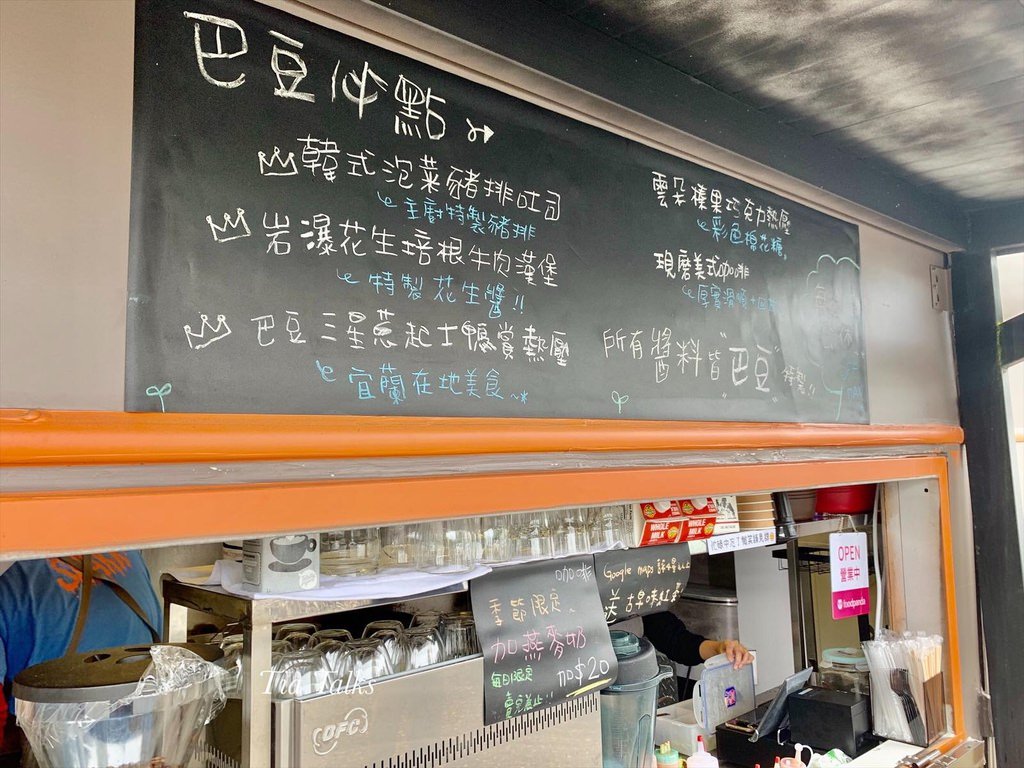 巴豆必點
韓式泡菜豬排吐司
主廚特製豬排
岩瀑花生培根牛肉漢堡
特製花生醬!!
巴豆三星蔥起士鴨賞熱壓
宜蘭在地美食~*
雲朵榛果巧克力熱壓
彩色棉花糖。
現磨美式咖啡
厚實滑順
所有醬料皆"巴豆"特製!!
WHOLE MILK
WHOLE MILK
咖啡
季節限定、
加燕麥奶
每日限定 加$20
賣完為止!!
Google maps
送古早味紅茶
OPEN
營業中
foodpanda
DFC
Tia Talks